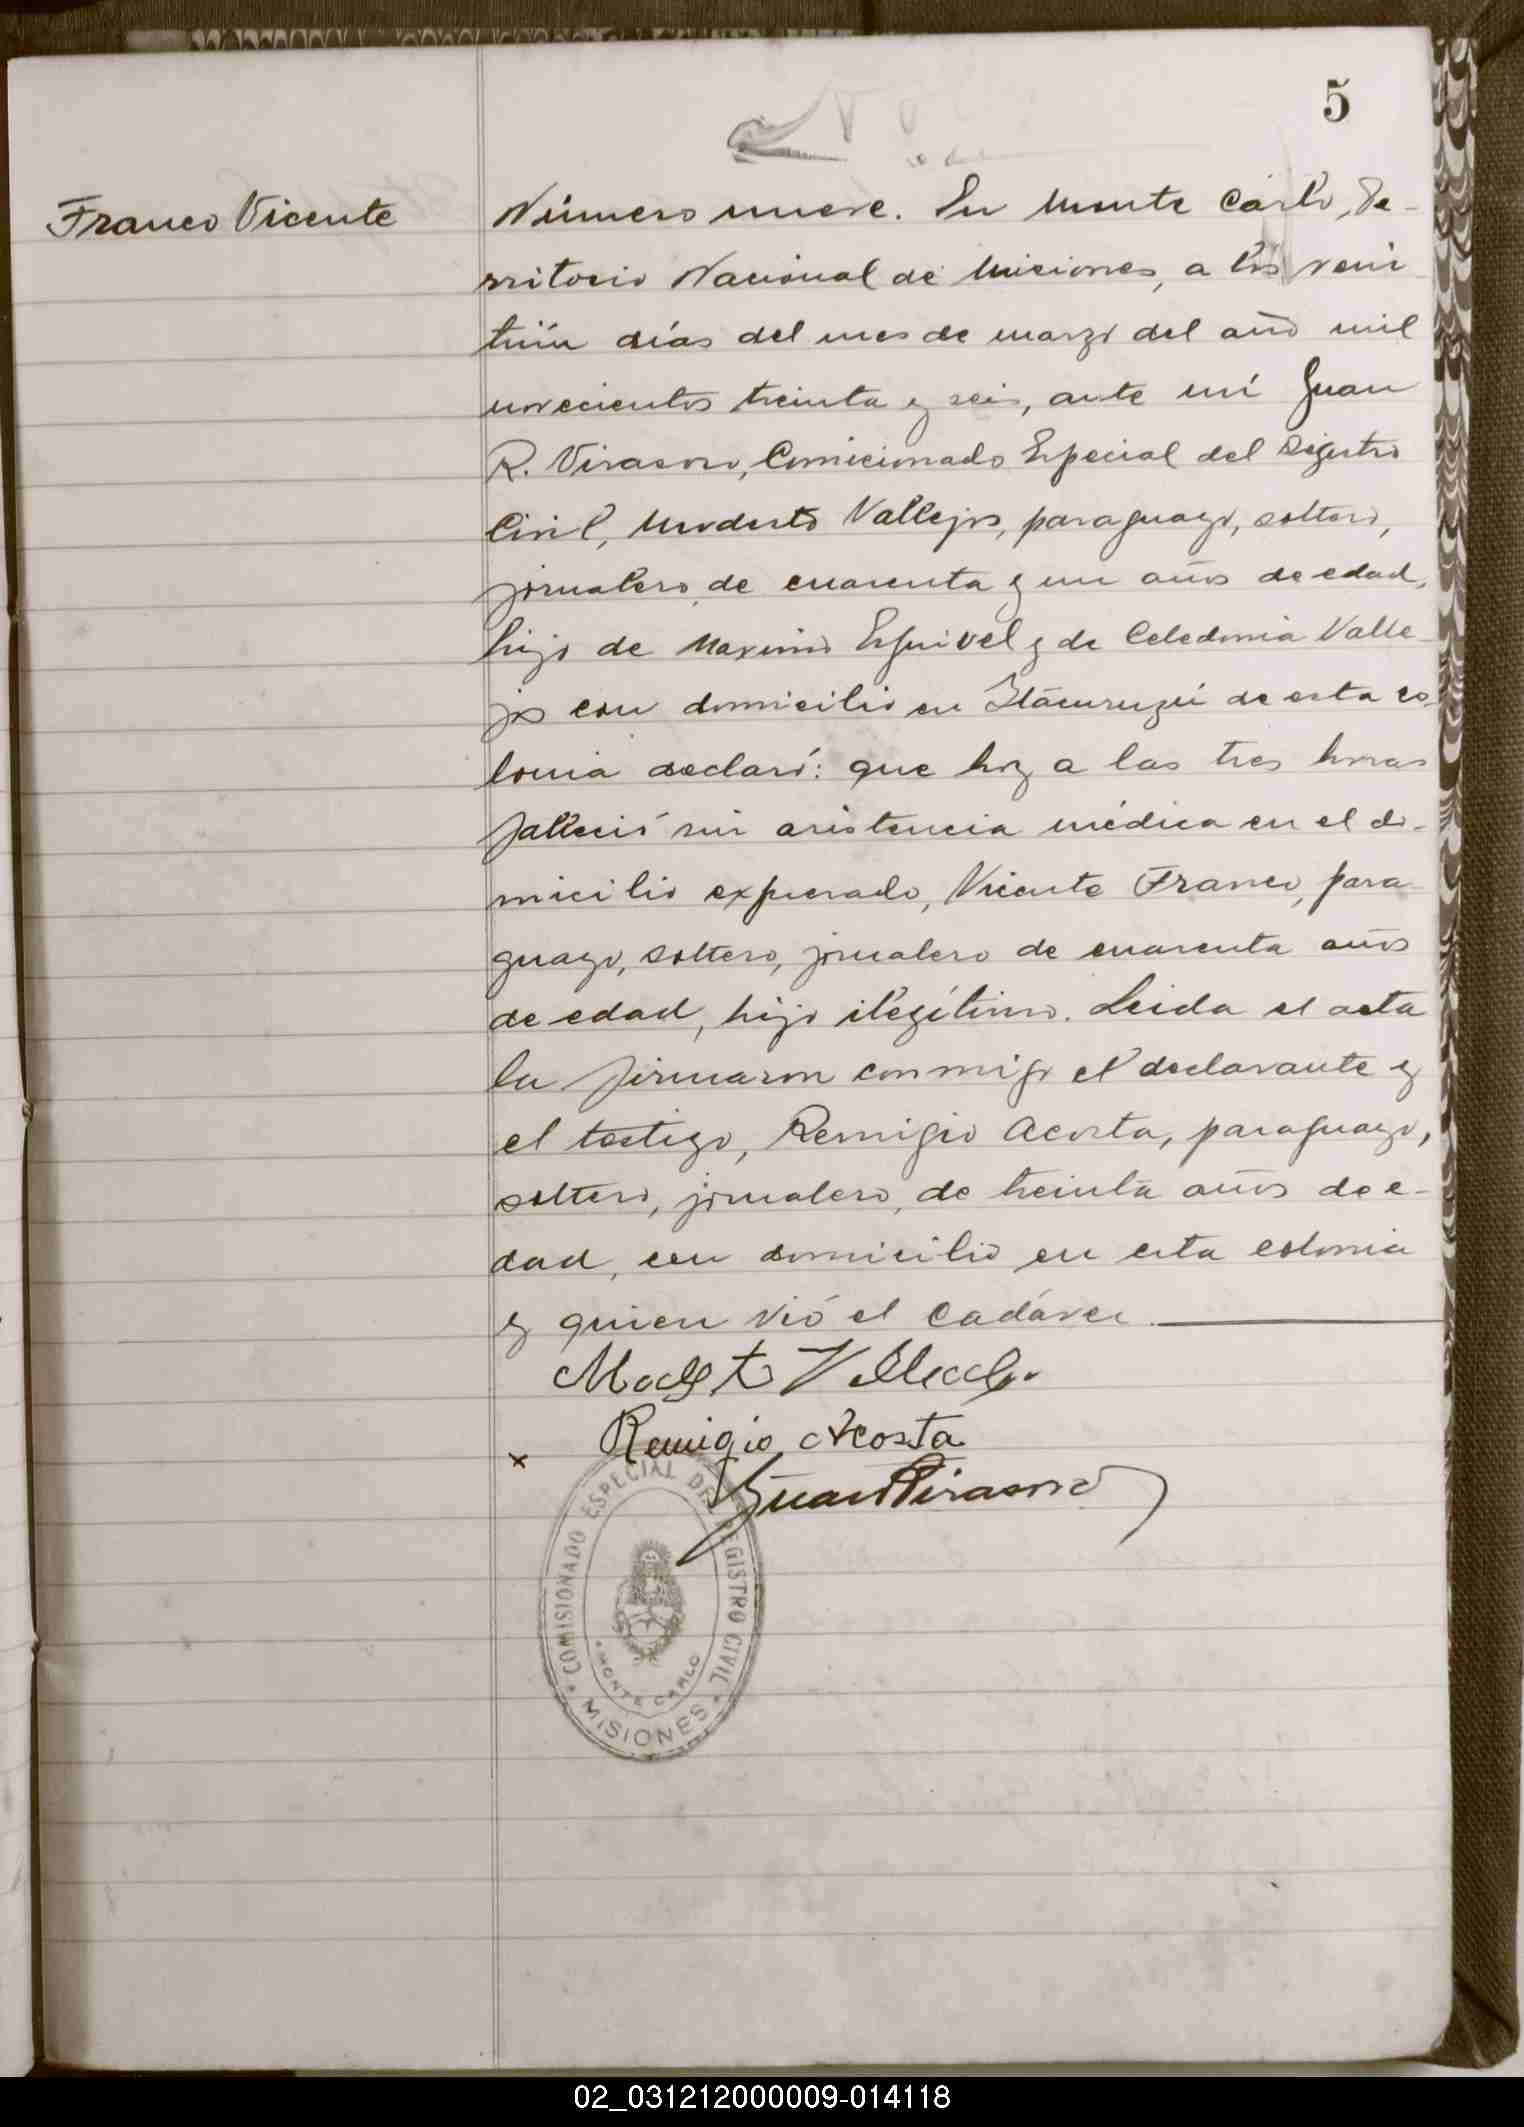 5
Franco Vicente
Número nueve. En Monte Carlo, Te-
rritorio Nacional de Miciones, a los vein
tiún días del mes de marzo del año mil
novecientos treinta y seis, ante mí Juan
R. Virasoro, Comicionado Especial del Registro
Civil, Modesto Vallejos, paraguayo, soltero,
jornalero, de cuarenta y un años de edad,
hijo de Maximo Esquivel y de Celedonia Valle-
jos con domicilio en Itacuruzú de esta co-
lonia declaró: que hoy a las tres horas
falleció sin asistencia médica en el do-
micilio expresado, Vicente Franco, para
guayo, soltero, jornalero de cuarenta años
de edad, hijo ilegítimo. Leida el acta
la firmaron conmigo el declarante y
el testigo, Remigio Acosta, paraguayo,
soltero, jornalero, de treinta años de e-
dad, con domicilio en esta colonia
y quien vió el cadáver.
Remigio Acosta
x
Juan Virasoro
COMISIONADO ESPECIAL DEL REGISTRO CIVIL
MONTE CARLO
MISIONES
02_031212000009-014118